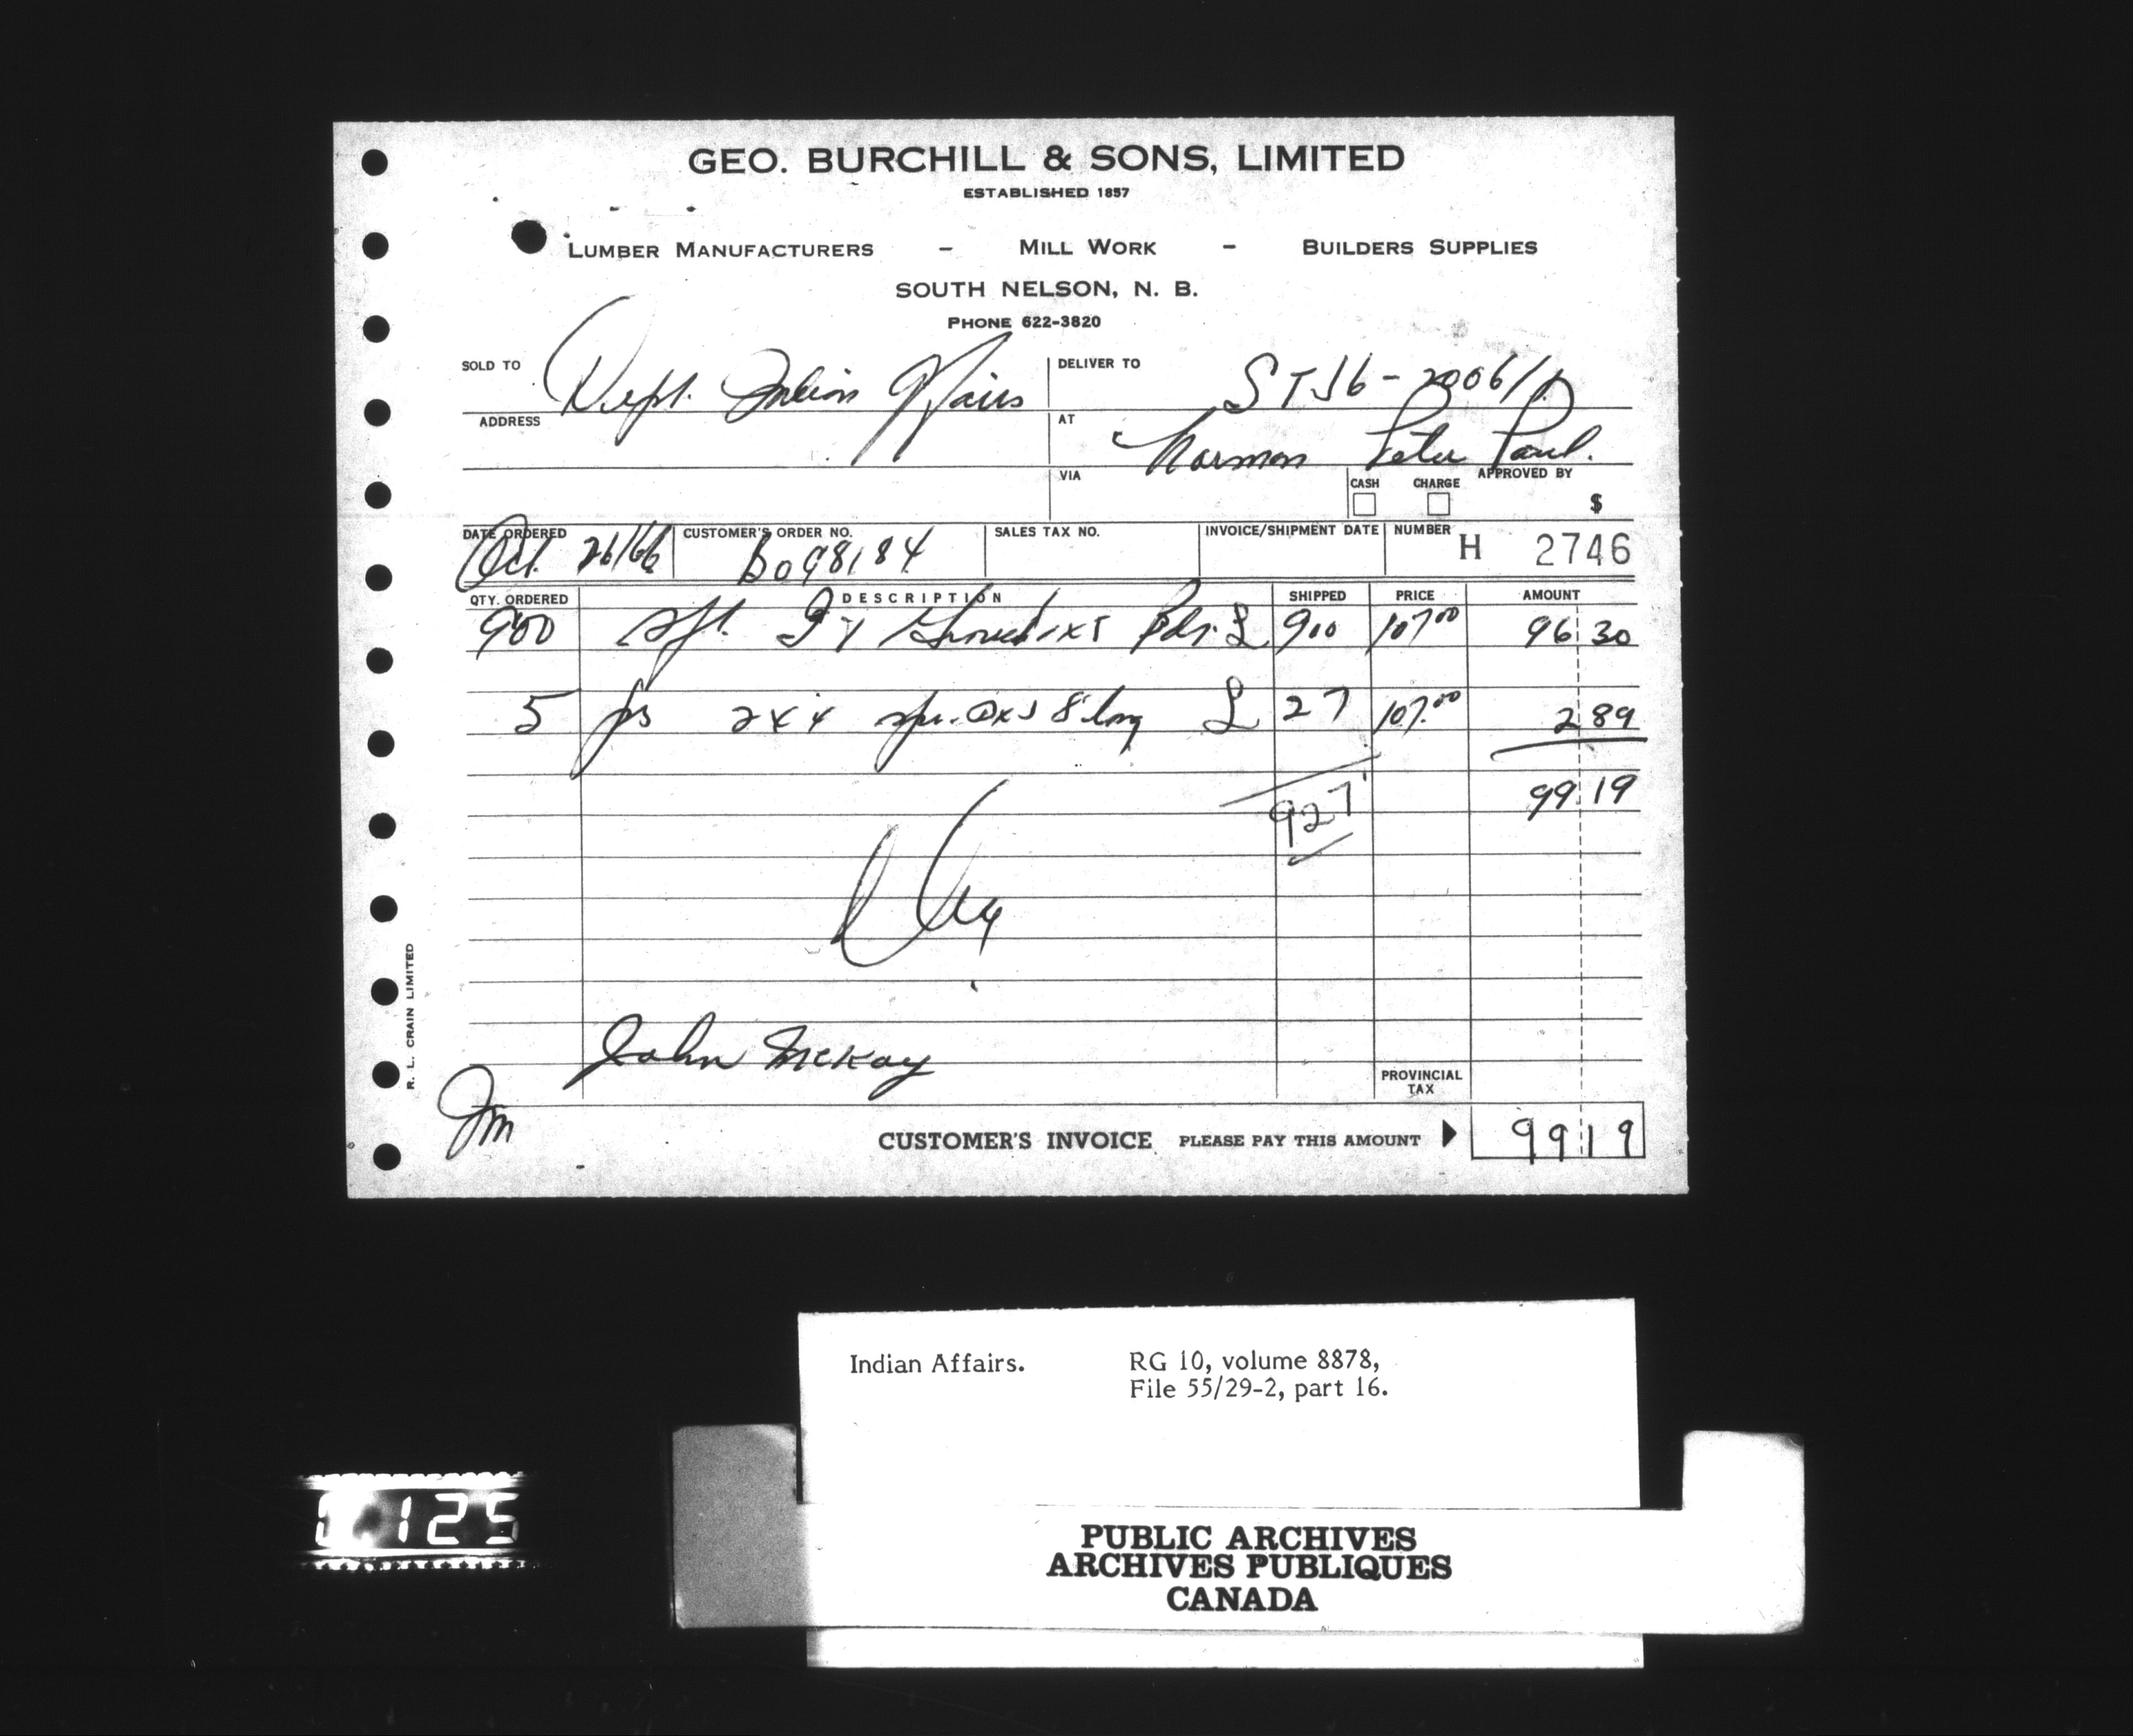 GEO. BURCHILL & SONS, LIMITED
ESTABLISHED 1857
LUMBER MANUFACTURERS - MILL WORK - BUILDERS SUPPLIES
SOUTH NELSON, N. B.
PHONE 622-3820
SOLD TO Dept. Indian Affairs
DELIVER TO
ADDRESS
AT Norman Peter Paul.
VIA
CASH CHARGE APPROVED BY
$
DATE ORDERED Oct. 26/66
CUSTOMER'S ORDER NO. B098184
SALES TAX NO.
INVOICE/SHIPMENT DATE
NUMBER H 2746
QTY. ORDERED DESCRIPTION SHIPPED PRICE AMOUNT
900 sft. 900 107.00 96 30
5 pcs 2x4 spr. 8' long 27 107.00 2 89
927 99 19
John McKay
Jm
R. L. CRAIN LIMITED
PROVINCIAL TAX
CUSTOMER'S INVOICE PLEASE PAY THIS AMOUNT 99 19
Indian Affairs. RG 10, volume 8878,
File 55/29-2, part 16.
125
PUBLIC ARCHIVES
ARCHIVES PUBLIQUES
CANADA